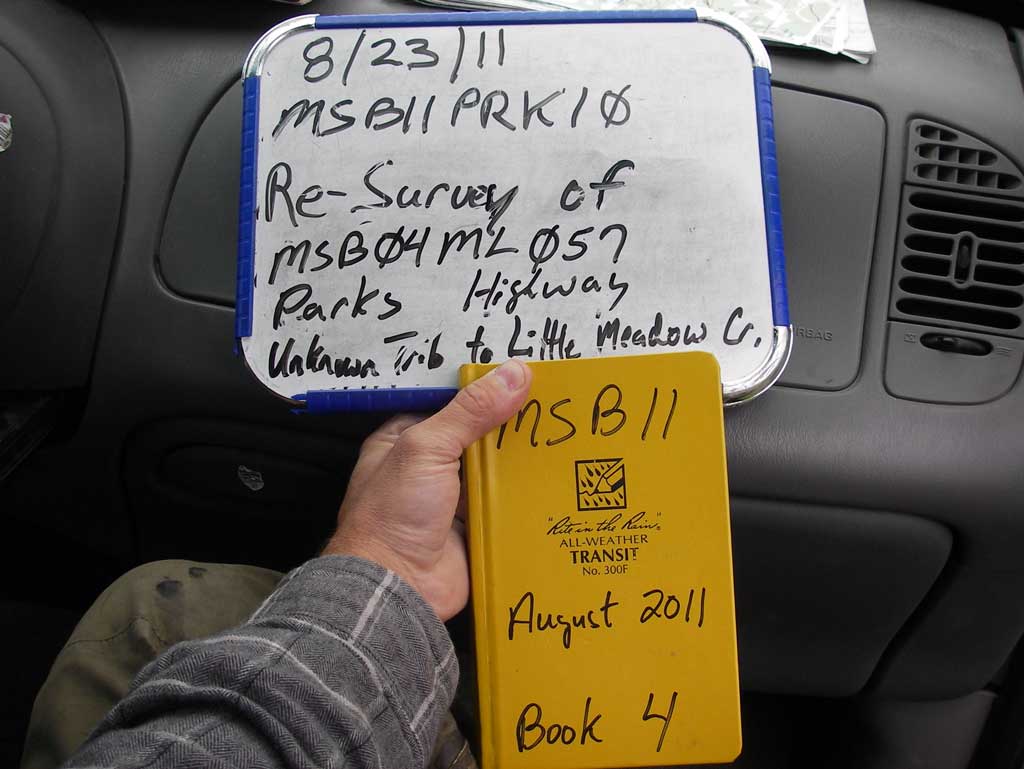 8/23/11
MSB11PRK10
Re-Survey of
MSB04ML057
Parks Highway
Unknown Trib to Little Meadow Cr.
MSB11
"Rite in the Rain"
ALL-WEATHER
TRANSIT
No. 300F
August 2011
Book 4